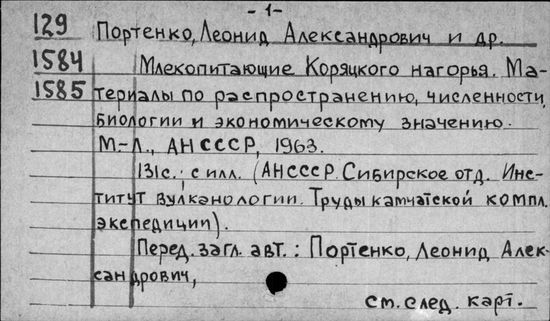 - 1 -
129 Портенко, Леонид Александрович и др.
1584 Млекопитающие Коряцкого нагорья. Ма-
1585 териалы по распространению, численности,
биологии и экономическому значению.
М-Л., АН СССР, 1963.
131с.; с илл. (АНСССР. Сибирское отд. Инс-
титут вулканологии. Труды камчатской компл.
экспедиции).
Перед. загл. авт.: Портенко, Леонид Алек-
сандрович,
см. след. карт.